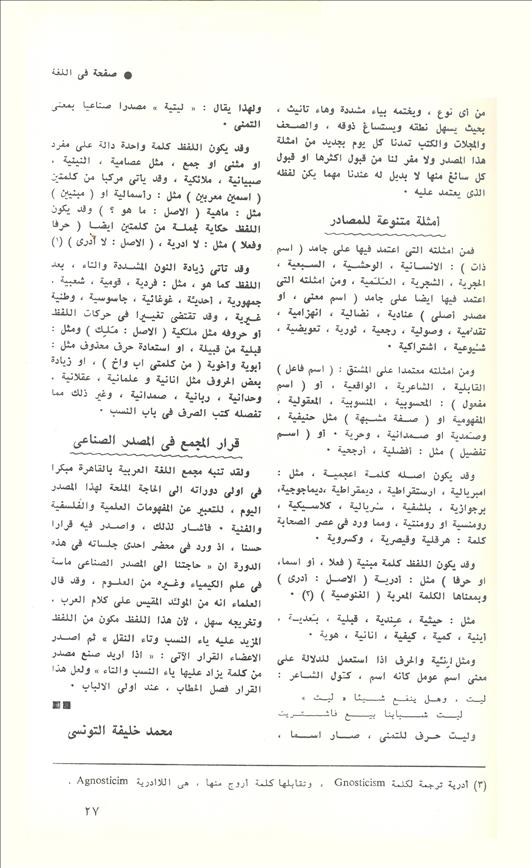 ● صفحة فى اللغة
من أى نوع ، ويختمه بياء مشددة وهاء تانيث ،
بحيث يسهل نطقه ويستساغ ذوقه ، والصحف
والمجلات والكتب تمدنا كل يوم بجديد من امثلة
هذا المصدر ولا مفر لنا من قبول اكثرها او قبول
كل سائغ منها لا بديل له عندنا مهما يكن لفظه
الذى يعتمد عليه .
أمثلة متنوعة للمصادر
فمن امثلته التى اعتمد فيها على جامد ( اسم
ذات ) : الانسانية ، الوحشية ، السبعية ،
الحجرية ، الشجرية ، العلمية ، ومن امثلته التى
اعتمد فيها ايضا على جامد ( اسم معنى ، او
مصدر اصلى ) عنادية ، نضالية ، انهزامية ،
تقدمية ، وصولية ، رجعية ، ثورية ، تعويضية ،
شيوعية ، اشتراكية .
ومن امثلته معتمدا على المشتق : ( اسم فاعل )
القابلية ، الشاعرية ، الواقعية ، أو ( اسم
مفعول ) : المحسوبية ، المنسوبية ، المعقولية ،
المفهومية او ( صفة مشبهة ) مثل حنيفية ،
وصمدية او صمدانية ، وحرية . أو ( اسم
تفضيل ) مثل : أفضلية ، أرجحية .
وقد يكون اصله كلمة اعجمية ، مثل :
امبريالية ، ارستقراطية ، ديمقراطية ،ديماجوجية،
برجوازية ، بلشفية ، سريالية ، كلاسيكية ،
رومنسية او رومنتية ، ومما ورد فى عصر الصحابة
كلمة : هرقلية وقيصرية ، وكسروية .
وقد يكون اللفظ كلمة مبنية ( فعلا ، أو اسما،
او حرفا ) مثل : أدرية ( الاصل : أدرى )
وبمعناها الكلمة المعربة ( الغنوصية ) (٣) .
مثل : حيثية ، عندية ، قبلية ، بعدية .
أينية ، كمية ، كيفية ، انانية ، هوية .
ومثل ليتية والحرف اذا استعمل للدلالة على
معنى اسم عومل كانه اسم ، كقول الشاعر :
ليت ، وهل ينفع شيئا « ليت »
ليت شبابنا بيع فاشتريت
وليت حرف للتمنى ، صار اسما ،
ولهذا يقال : « ليتية » مصدرا صناعيا بمعنى
التمنى .
وقد يكون اللفظ كلمة واحدة دالة على مفرد
او مثنى او جمع ، مثل عصامية ، اثنينية .
صبيانية ، ملائكية ، وقد ياتى مركبا من كلمتين
( اسمين معربين ) مثل : رأسمالية او ( مبنيين )
مثل : ماهية ( الاصل : ما هو ؟ ) وقد يكون
اللفظ حكاية لجملة من كلمتين ايضا ( حرفا
وفعلا ) مثل : لا ادرية ، ( الاصل : لا أدرى ) (١)
وقد تأتى زيادة النون المشددة والتاء ، بعد
اللفظ كما هو ، مثل : فردية ، قومية ، شعبية .
جمهورية ، احديثة ، غوغائية ، جاسوسية ، وطنية
غيرية ، وقد تقتضى تغييرا فى حركات اللفظ
أو حروفه مثل ملكية ( الاصل : ملك ) ومثل :
قبلية من قبيلة ، او استعادة حرف محذوف مثل :
أبوية واخوية ( من كلمتى اب واخ ) ، او زيادة
بعض الحروف مثل انانية و علمانية ، عقلانية .
وحدانية ، ربانية ، صمدانية ، وغير ذلك مما
تفصله كتب الصرف فى باب النسب .
قرار المجمع فى المصدر الصناعى
ولقد تنبه مجمع اللغة العربية بالقاهرة مبكرا
فى اولى دوراته الى الحاجة الملحة لهذا المصدر
اليوم ، للتعبير عن المفهومات العلمية والفلسفية
والفنية . فاشار لذلك ، واصدر فيه قرارا
حسنا ، اذ ورد فى محضر احدى جلساته فى هذه
الدورة ان « حاجتنا الى المصدر الصناعى ماسة
فى علم الكيمياء وغيره من العلوم ، وقد قال
العلماء انه من المولد المقيس على كلام العرب .
وتخريجه سهل ، لأن هذا اللفظ مكون من اللفظ
المزيد عليه ياء النسب وتاء النقل » ثم اصدر
الاعضاء القرار الآتى : « اذا اريد صنع مصدر
من كلمة يزاد عليها ياء النسب والتاء » ولعل هذا
القرار فصل الخطاب ، عند اولى الالباب .
محمد خليفة التونسى
(٣) أدرية ترجمة لكلمة Gnosticism ، وتقابلها كلمة أروج منها ، هى اللاادرية Agnosticim .
٢٧